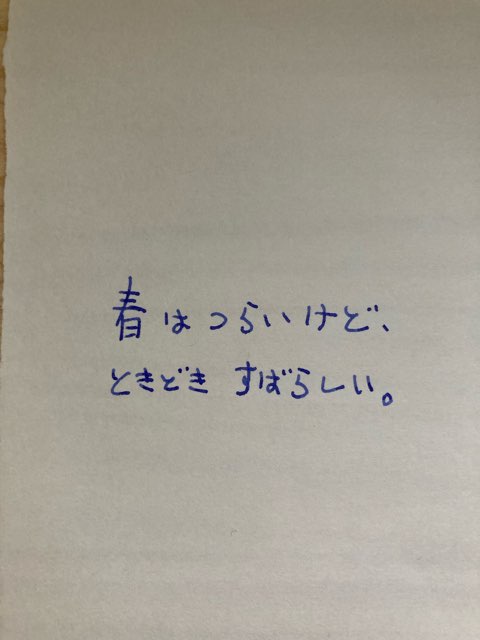 春はつらいけど、
ときどき すばらしい。